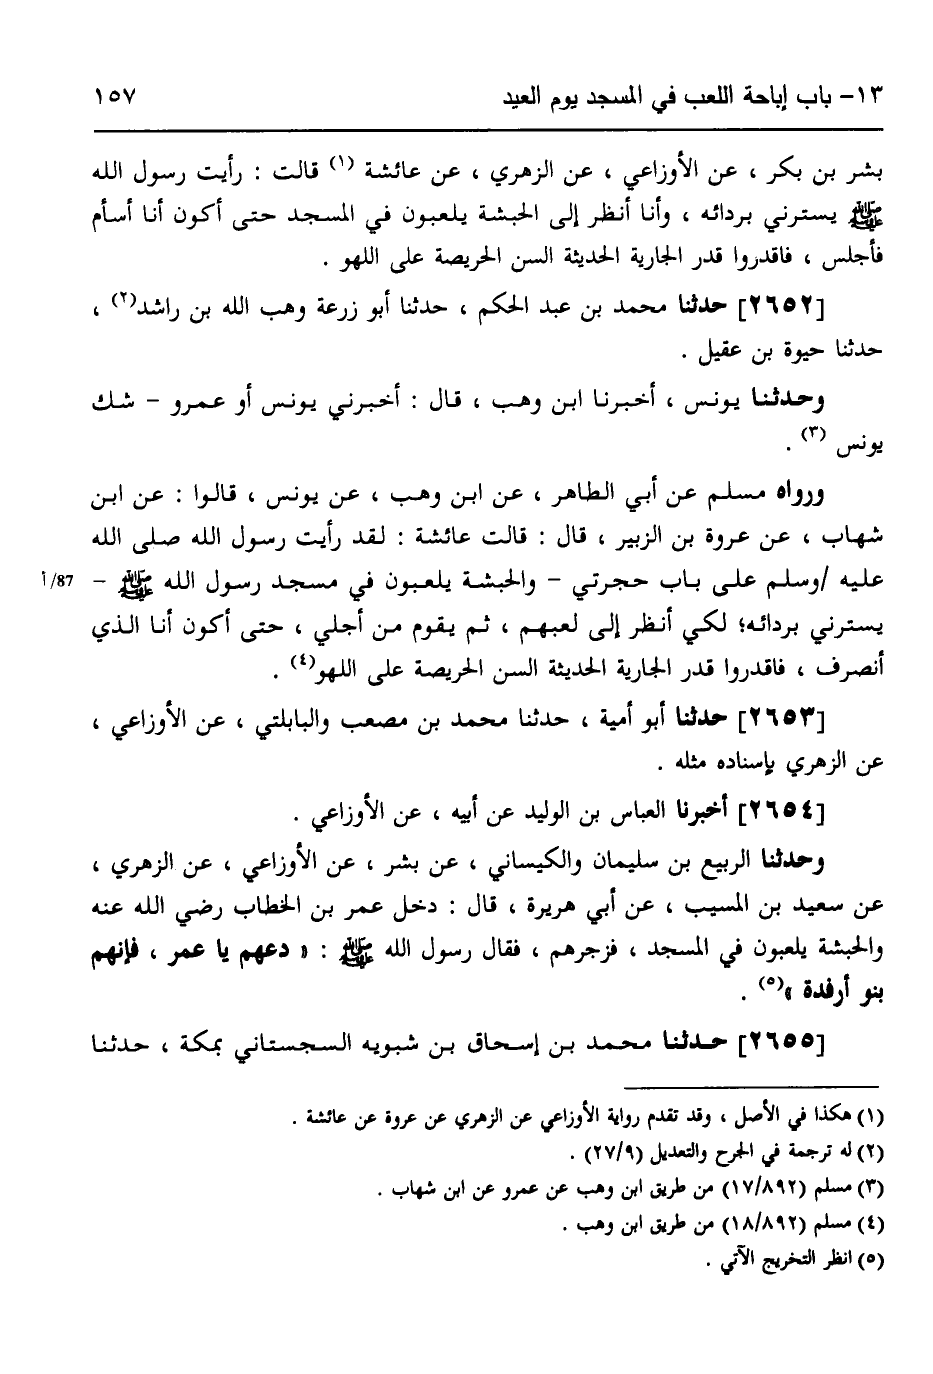 ١٣- باب إباحة اللعب في المسجد يوم العيد ١٥٧
بشر بن بكر ، عن الأوزاعي ، عن الزهري ، عن عائشة (١) قالت : رأيت رسول الله
ﷺ يسترني بردائه ، وأنا أنظر إلى الحبشة يلعبون في المسجد حتى أكون أنا أسأم
فأجلس ، فاقدروا قدر الجارية الحديثة السن الحريصة على اللهو .
[٢٦٥٢] حدثنا محمد بن عبد الحكم ، حدثنا أبو زرعة وهب الله بن راشد(٢) ،
حدثنا حيوة بن عقيل .
وحدثنا يونس ، أخبرنا ابن وهب ، قال : أخبرني يونس أو عمرو - شك
يونس (٣) .
ورواه مسلم عن أبي الطاهر ، عن ابن وهب ، عن يونس ، قالوا : عن ابن
شهاب ، عن عروة بن الزبير ، قال : قالت عائشة : لقد رأيت رسول الله صلى الله
عليه /وسلم على باب حجرتي - والحبشة يلعبون في مسجد رسول الله ﷺ - 87/أ
يسترني بردائه؛ لكي أنظر إلى لعبهم ، ثم يقوم من أجلي ، حتى أكون أنا الذي
أنصرف ، فاقدروا قدر الجارية الحديثة السن الحريصة على اللهو(٤) .
[٢٦٥٣] حدثنا أبو أمية ، حدثنا محمد بن مصعب والبابلتي ، عن الأوزاعي ،
عن الزهري بإسناده مثله .
[٢٦٥٤] أخبرنا العباس بن الوليد عن أبيه ، عن الأوزاعي .
وحدثنا الربيع بن سليمان والكيساني ، عن بشر ، عن الأوزاعي ، عن الزهري ،
عن سعيد بن المسيب ، عن أبي هريرة ، قال : دخل عمر بن الخطاب رضي الله عنه
والحبشة يلعبون في المسجد ، فزجرهم ، فقال رسول الله ﷺ : « دعهم يا عمر ، فإنهم
بنو أرفدة »(٥) .
[٢٦٥٥] حدثنا محمد بن إسحاق بن شبويه السجستاني بمكة ، حدثنا
(١) هكذا في الأصل ، وقد تقدم رواية الأوزاعي عن الزهري عن عروة عن عائشة .
(٢) له ترجمة في الجرح والتعديل (٢٧/٩) .
(٣) مسلم (١٧/٨٩٢) من طريق ابن وهب عن عمرو عن ابن شهاب .
(٤) مسلم (١٨/٨٩٢) من طريق ابن وهب .
(٥) انظر التخريج الآتي .